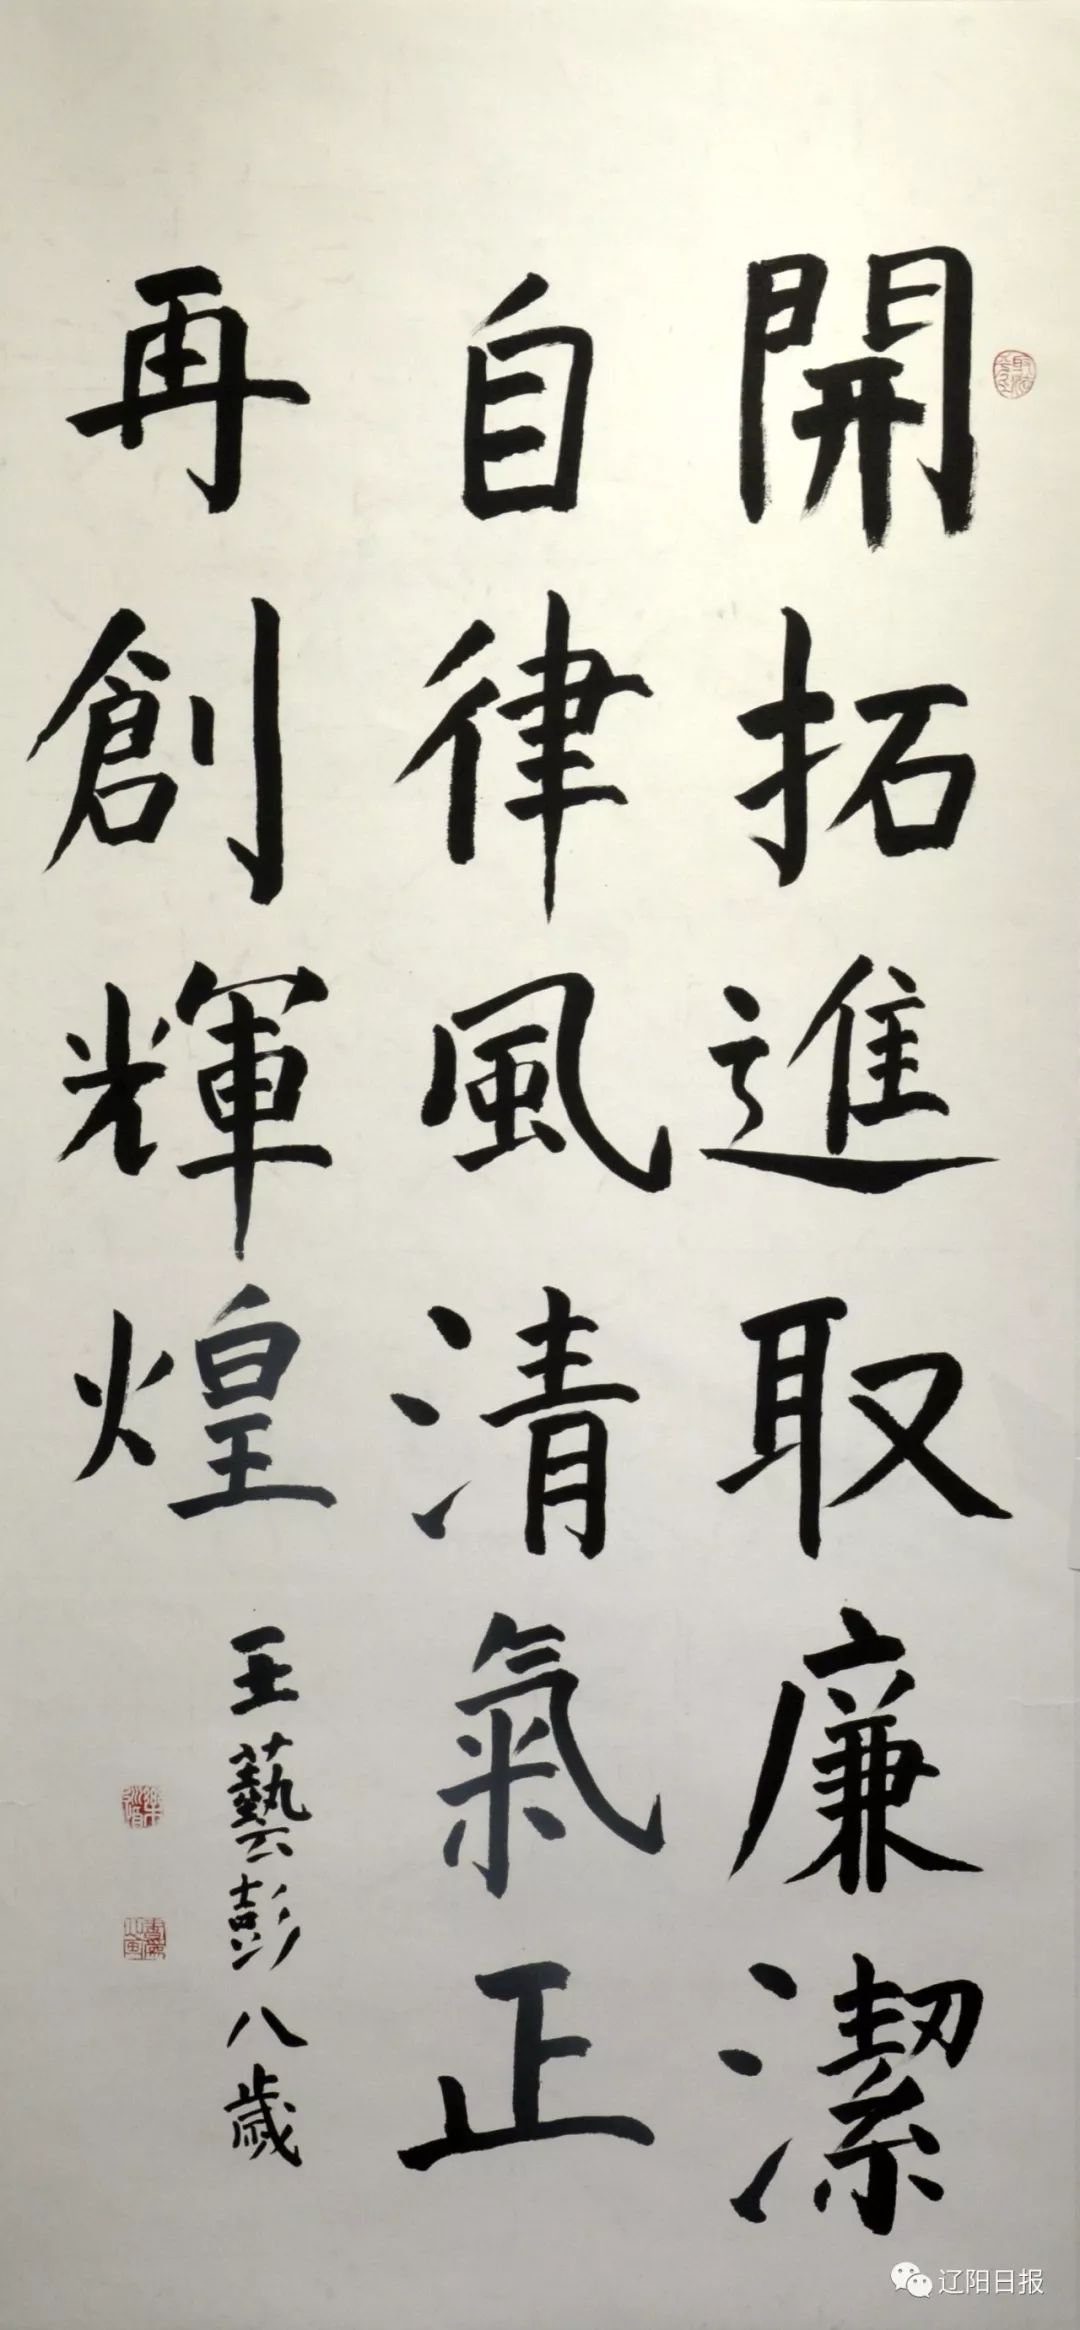 開拓進取廉潔
自律風清氣正
再創輝煌
王藝彭八歲
辽阳日报